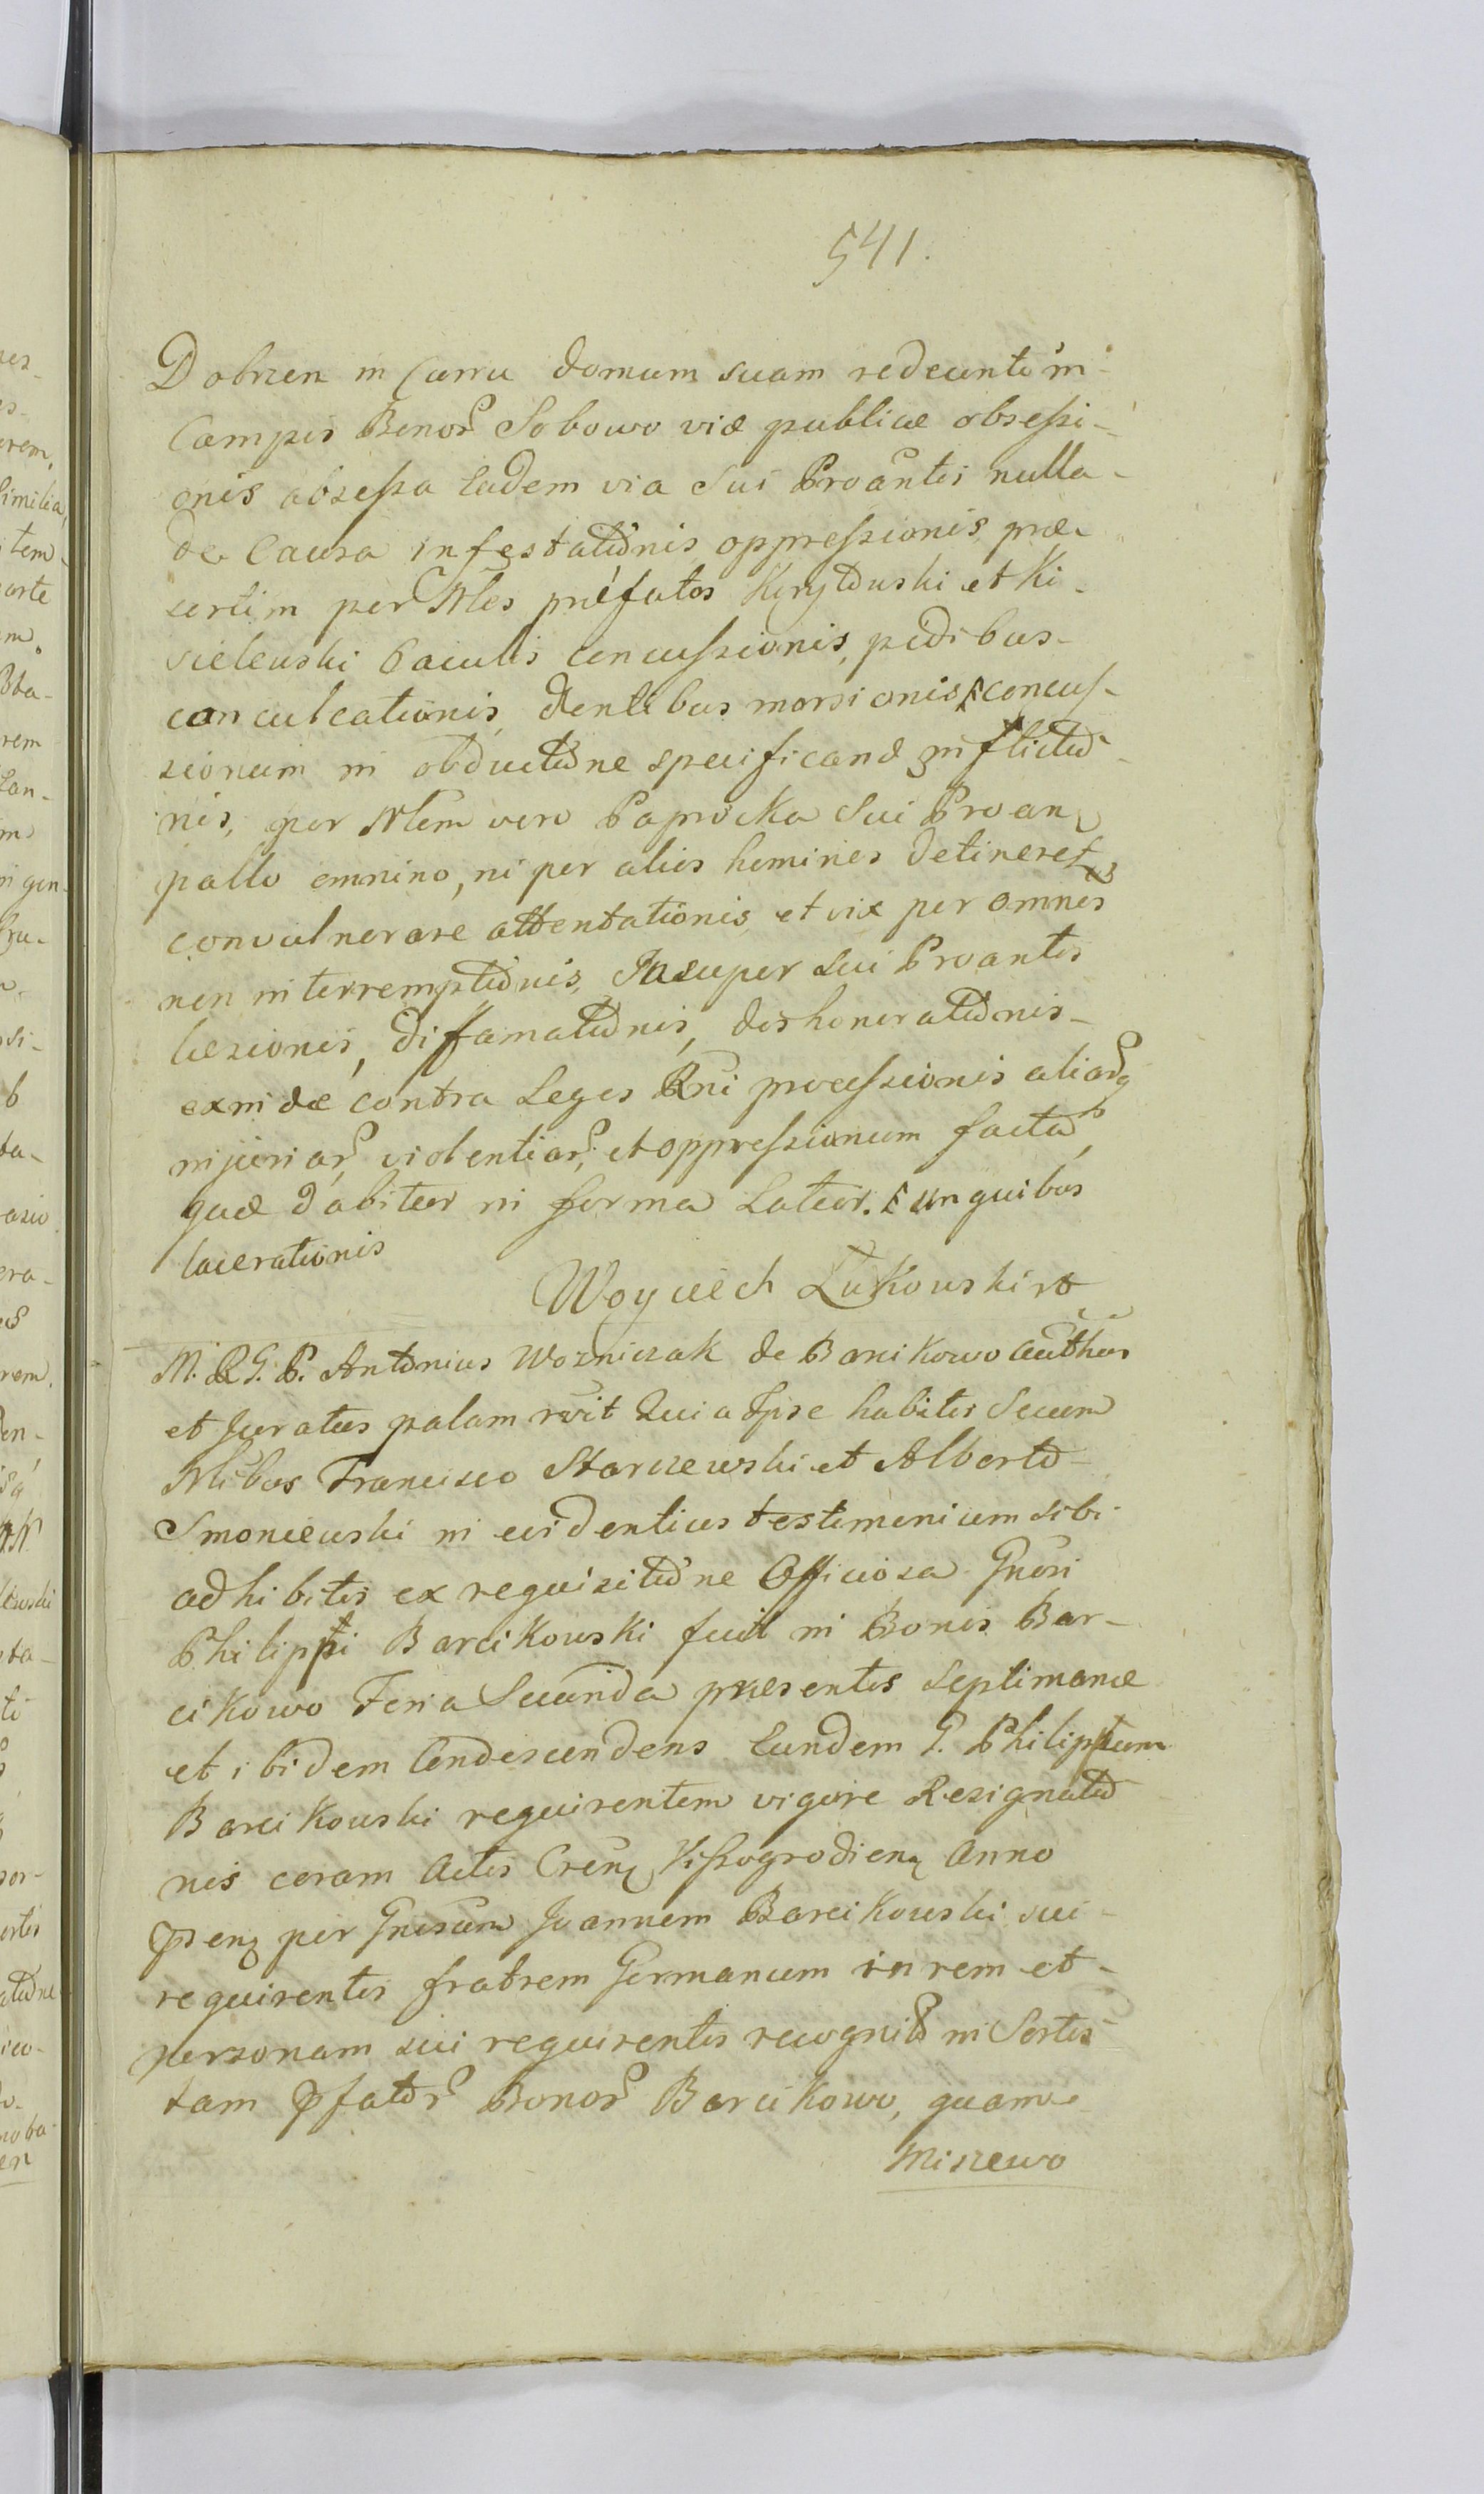 541.
Dobrzen in Curru domum suam redeunte in
Campis Bonor Sobowo viæ publicæ obsessi-
onis obsessa Eadem via sui Proantis nulla-
de Causa infestationis oppressionis præ-
sertim per Nles præfatos et Ki-
sielewski baculis concussionis, pedibus-
conculcationis, dentibus morsionis, concus-
sionum in obductione specificand inflictio-
nis, per Nlem vero Paprocka sui Proan
pallo omnino, ni per alios homines detineret
convulnerare attentationis, et vix per omnes
non interremptionis, Insuper sui Proantis
læsionis, diffamationis, deshonorationis-
exinde contra Leges Rni processionis aliarq
injuriar, violentiar, et oppressionum facta,
quæ dabitur in forma Latior. unguibus
lacerationis
Woyciech Łukowski
M. R G. P. Antonius Wozniczak de Barcikowo authen
et Juratus palam rvit Quia Ipse habitis Secum
Nlibus Francisco Starczewski et Alberto
Smoniewski in evidentius testimonium sibi
adhibitis ex requisitione Officiosa Gnosi
Philippi Barcikowski fuit in Bonis Bar-
cikowo Feria Secunda præsentis Septimanæ
et ibidem Condescendens Eundem G. Philippum
Barcikowski requirentem vigore Resignatio
nis coram Actis Cren Wissogrodien Anno
psen per Gnosum Joannem Barcikowski sui-
requirentis fratrem Germanum in rem et-
personam sui requirentis recognit in Sortes
tam pfator Bonor Barcikowo, quam
Miszewo